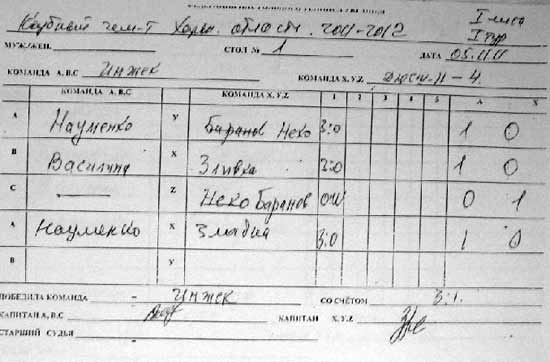 Клубный чем-т Харьк. области. 2011-2012 I лига
I тур
МУЖ/ЖЕН. СТОЛ № 1 ДАТА 05.11.11
КОМАНДА А,В,С Инжек КОМАНДА X,Y,Z ДЮСШ-11-4.
КОМАНДА А,В,С КОМАНДА X,Y,Z 1 2 3 4 5 А X
А Науменко Y Баранов Неко 3:0 1 0
В X 3:0 1 0
С — Z Неко Баранов 0W 0 1
А Науменко X 3:0 1 0
В Y
ПОБЕДИЛА КОМАНДА - Инжек СО СЧЁТОМ 3:1.
КАПИТАН А,В,С КАПИТАН X,Y,Z
СТАРШИЙ СУДЬЯ